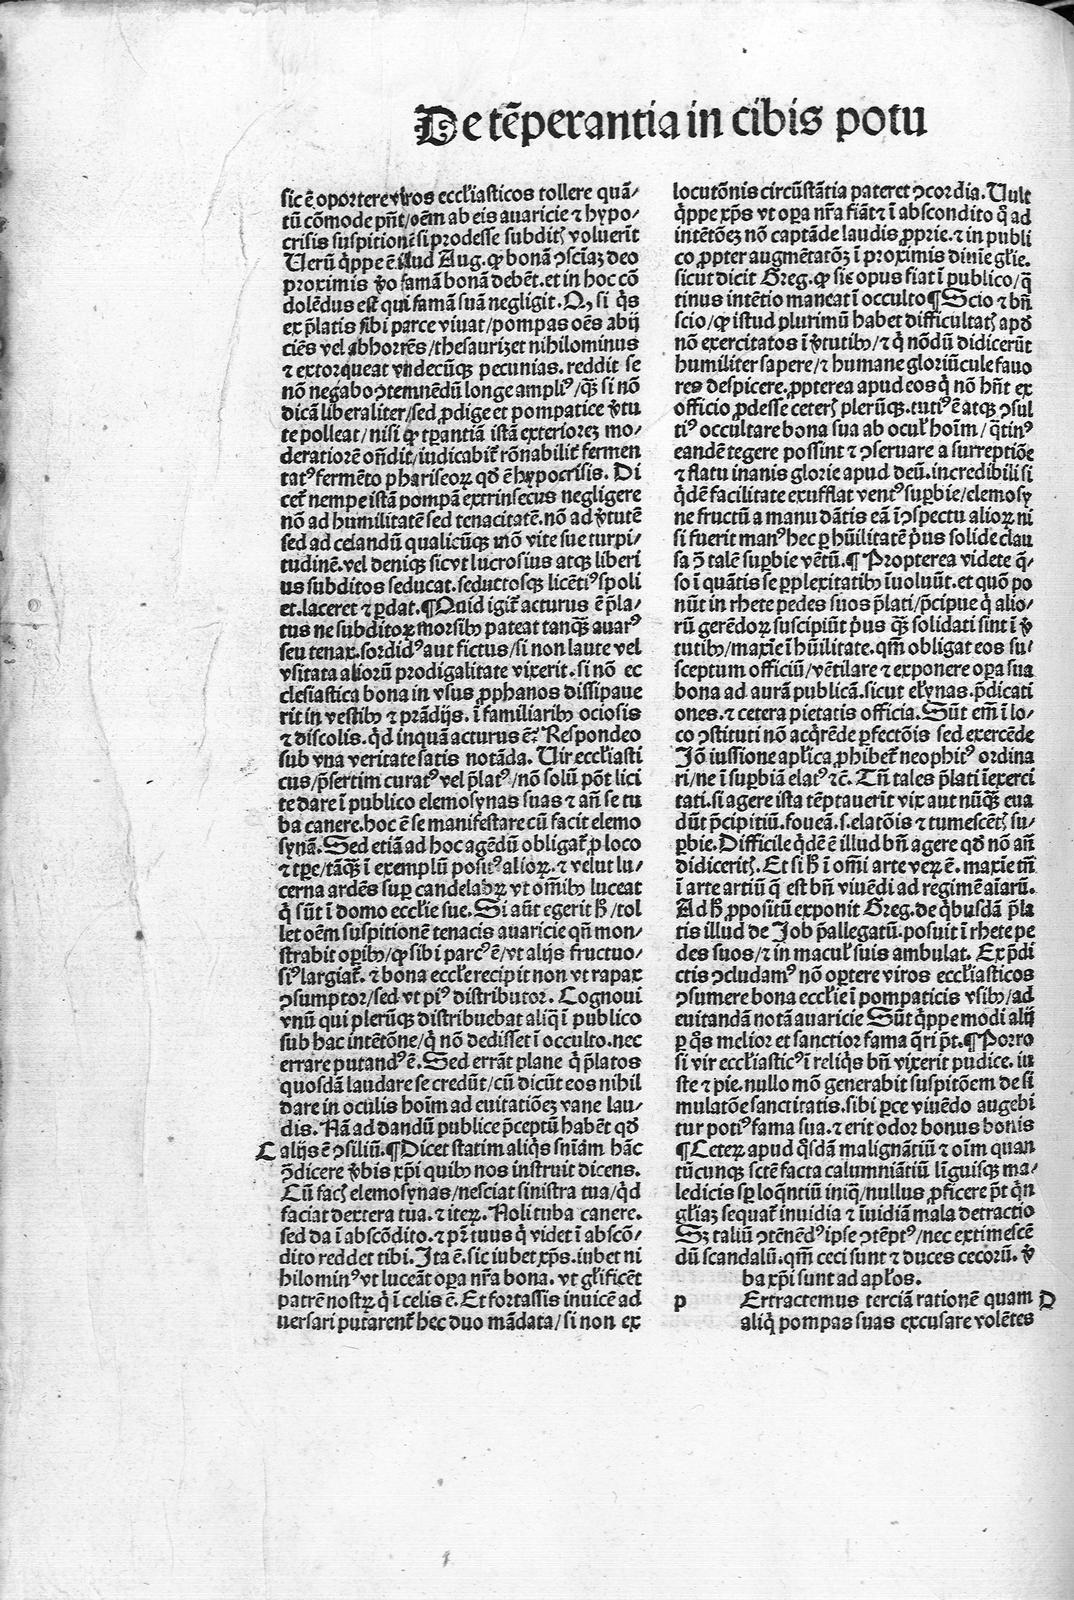 De tēperantia in cibis potu
sic ē oportere viros eccl'iasticos tollere quā/
tū cōmode pn̄t/oēm ab eis auaricie ⁊ hypo/
crisis suspitionē si prodesse subditꝭ voluerīt
Uerū q̄ppe ē illud Aug. ꝙ bonā ꝯsciāꝫ deo
proximis ꝟo famā bonā debēt. et in hoc cō
dolēdus est qui famā suā negligit. Qꝫ si q̄s
ex p̄latis sibi parce viuat/pompas oēs abij
ciēs vel abhorrēs/thesaurizet nihilominus
⁊ extorqueat vndecūqꝫ pecunias. reddit se
nō nego ꝯtemnēdū longe ampliꝰ/qꝫ̄ si nō
dicā liberaliter/sed ꝓdige et pompatice ꝟtu
te polleat/nisi ꝙ tꝑantiā istā exterioreꝫ mo/
deratiorē on̄dit/iudicabit᷑ rōnabilit᷑ fermen
tatꝰ fermēto phariseoꝝ qd̄ ē hypocrisis. Di
cet᷑ nempe istā pompā extrinsecus negligere
nō ad humilitatē sed tenacitatē. nō ad ꝟtutē
sed ad celandū qualicūqꝫ mō vite sue turpi/
tudinē. vel deniqꝫ sicvt lucrosius atqꝫ liberi
us subditos seducat. seductosqꝫ licētiꝰ spoli
et. laceret ⁊ ꝑdat. ¶Quid igit᷑ acturus ē p̄la/
tus ne subditoꝝ morsibꝫ pateat tanqꝫ̄ auarꝰ
seu tenax. sordidꝰ aut fictus/si non laute vel
vsitata aliorū prodigalitate vixerit. si nō ec
clesiastica bona in vsus ꝓphanos dissipaue
rit in vestibꝫ ⁊ prādijs. ī familiaribꝫ ociosis
⁊ discolis. q̄d inquā acturus ē? Respondeo
sub vna veritate satis notāda. Uir eccl'iasti
cus/p̄sertim curatꝰ vel p̄latꝰ/nō solū pōt lici
te dare ī publico elemosynas suas ⁊ an̄ se tu
ba canere. hoc ē se manifestare cū facit elemo
synā. Sed etiā ad hoc agēdū obligat᷑ ꝓ loco
⁊ tꝑe/tāqꝫ̄ ī exemplū positꝰ alioꝝ. ⁊ velut lu/
cerna ardēs suꝑ candelabꝝ vt om̄ibꝫ luceat
q̄ sūt ī domo eccl'ie sue. Si aūt egerit h̄/tol
let oēm suspitionē tenacis auaricie qn̄ mon/
strabit oꝑibꝫ/ꝙ sibi parcꝰ ē/vt alijs fructuo/
siꝰ largiat᷑. ⁊ bona eccl'e recipit non vt rapax
ꝯsumptor/sed vt piꝰ distributor. Cognoui
vnū qui plerūqꝫ distribuebat aliq̄ ī publico
sub hac intētōne/q̄ nō dedisset ī occulto. nec
errare putandꝰ ē. Sed errāt plane q̄ p̄latos
quosdā laudare se credūt/cū dicūt eos nihil
dare in oculis hoīm ad euitatiōeꝫ vane lau/
dis. Nā ad dandū publice p̄ceptū habēt qd̄
C alijs ē ꝯsiliū. ¶Dicet statim aliq̄s sn̄iam hāc
ꝯ̄dicere ꝟbis xp̄i quibꝫ nos instruit dicens.
Cū facꝭ elemosynas/nesciat sinistra tua/q̄d
faciat dextera tua. ⁊ iteꝝ. Noli tuba canere.
sed da ī abscōdito. ⁊ pr̄ tuus q̄ videt ī abscō/
dito reddet tibi. Ita ē. sic iubet xp̄s. iubet ni
hilominꝰ vt luceāt oꝑa nr̄a bona. vt gl'ificēt
patrē nostꝝ q̄ ī celis ē. Et fortassis inuicē ad
uersari putarent᷑ hec duo mādata/si non ex
locutōnis circūstātia pateret ꝯcordia. Uult
q̄ppe xp̄s vt oꝑa nr̄a fiāt ⁊ ī abscondito q̄ ad
intētōeꝫ nō captāde laudis ꝓprie. ⁊ in publi
co ꝓpter augmētatōꝫ ī proximis diuine gl'ie.
sicut dicit Greg. ꝙ sic opus fiat ī publico/q̄
tinus intētio maneat ī occulto ¶Scio ⁊ bn̄
scio/ꝙ istud plurimū habet difficultatꝭ apd̄
nō exercitatos ī ꝟtutibꝫ/⁊ q̄ nōdū didicerūt
humiliter sapere/⁊ humane gloriūcule fauo
res despicere. ꝓpterea apud eos q̄ nō hn̄t ex
officio ꝓdesse ceterꝭ plerūqꝫ. tutiꝰ ē atqꝫ ꝯsul
tiꝰ occultare bona sua ab ocul' hoīm/q̄tinꝰ
eandē tegere possint ⁊ ꝯseruare a surreptiōe
⁊ flatu inanis glorie apud deū. incredibili si
q̄dē facilitate exufflat ventꝰ suꝑbie/elemosy
ne fructū a manu dātis eā ī ꝯspectu alioꝝ ni
si fuerit manꝰ hec ꝑ hūilitatē pꝰus solide clau
sa ꝯ̄ talē suꝑbie vētū. ¶ Propterea videte q̄/
so ī quātis se ꝑplexitatibꝫ īuoluūt. et quō po
nūt in rhete pedes suos p̄lati/p̄cipue q̄ alio/
rū gerēdoꝝ suscipiūt pꝰus qꝫ̄ solidati sint ī ꝟ
tutibꝫ/maxīe ī hūilitate. qm̄ obligat eos su/
sceptum officiū/vētilare ⁊ exponere oꝑa sua
bona ad aurā publicā. sicut el'ynas. p̄dicati
ones. ⁊ cetera pietatis officia. Sūt em̄ ī lo/
co ꝯstituti nō acq̄rēde ꝑfectōis sed exercēde
Iō iussione apl'ica ꝓhibet᷑ neophitꝰ ordina
ri/ne ī suꝑbiā elatꝰ ⁊c̄. Tn̄ tales p̄lati īexerci
tati. si agere ista tēptauerīt vix aut nūqꝫ̄ eua
dūt p̄cipitiū. foueā. s. elatōis ⁊ tumescētꝭ su/
ꝑbie. Difficile q̄dē ē illud bn̄ agere qd̄ nō an̄
didiceritꝭ. Et si h̄ ī om̄i arte veꝝ ē. maxīe tm̄
ī arte artiū q̄ est bn̄ viuēdi ad regimē aīarū.
Ad h̄ ꝓpositū exponit Greg. de q̄busdā p̄la
tis illud de Job p̄allegatū. posuit ī rhete pe
des suos/⁊ in macul' suis ambulat. Ex p̄di
ctis ꝯcludamꝰ nō oꝑtere viros eccl'iasticos
ꝯsumere bona eccl'ie ī pompaticis vsibꝫ/ad
euitandā notā auaricie Sūt q̄ppe modi alij
ꝑ q̄s melior et sanctior fama q̄ri pt̄. ¶Porro
si vir eccl'iasticꝰ ī reliq̄s bn̄ vixerit pudice. iu
ste ⁊ pie. nullo mō generabit suspitōem de si
mulatōe sanctitatis. sibi ꝑce viuēdo augebi
tur potiꝰ fama sua. ⁊ erit odor bonus bonis
¶Ceteꝝ apud q̄sdā malignātiū ⁊ oīm quan
tūcunqꝫ sctē facta calumniātiū līguisqꝫ ma/
ledicis sꝑ loq̄ntiū iniq̄/nullus ꝓficere pt̄ q̄n
gl'iaꝫ sequat᷑ inuidia ⁊ īuidiā mala detractio
Sꝫ taliū ꝯtēnēdꝰ ipse ꝯtēptꝰ/nec extimescē
dū scandalū. qm̄ ceci sunt ⁊ duces cecorū. ꝟ
ba xp̄i sunt ad apl'os.
p Ertractemus terciā rationē quam D
aliq̄ pompas suas excusare volētes